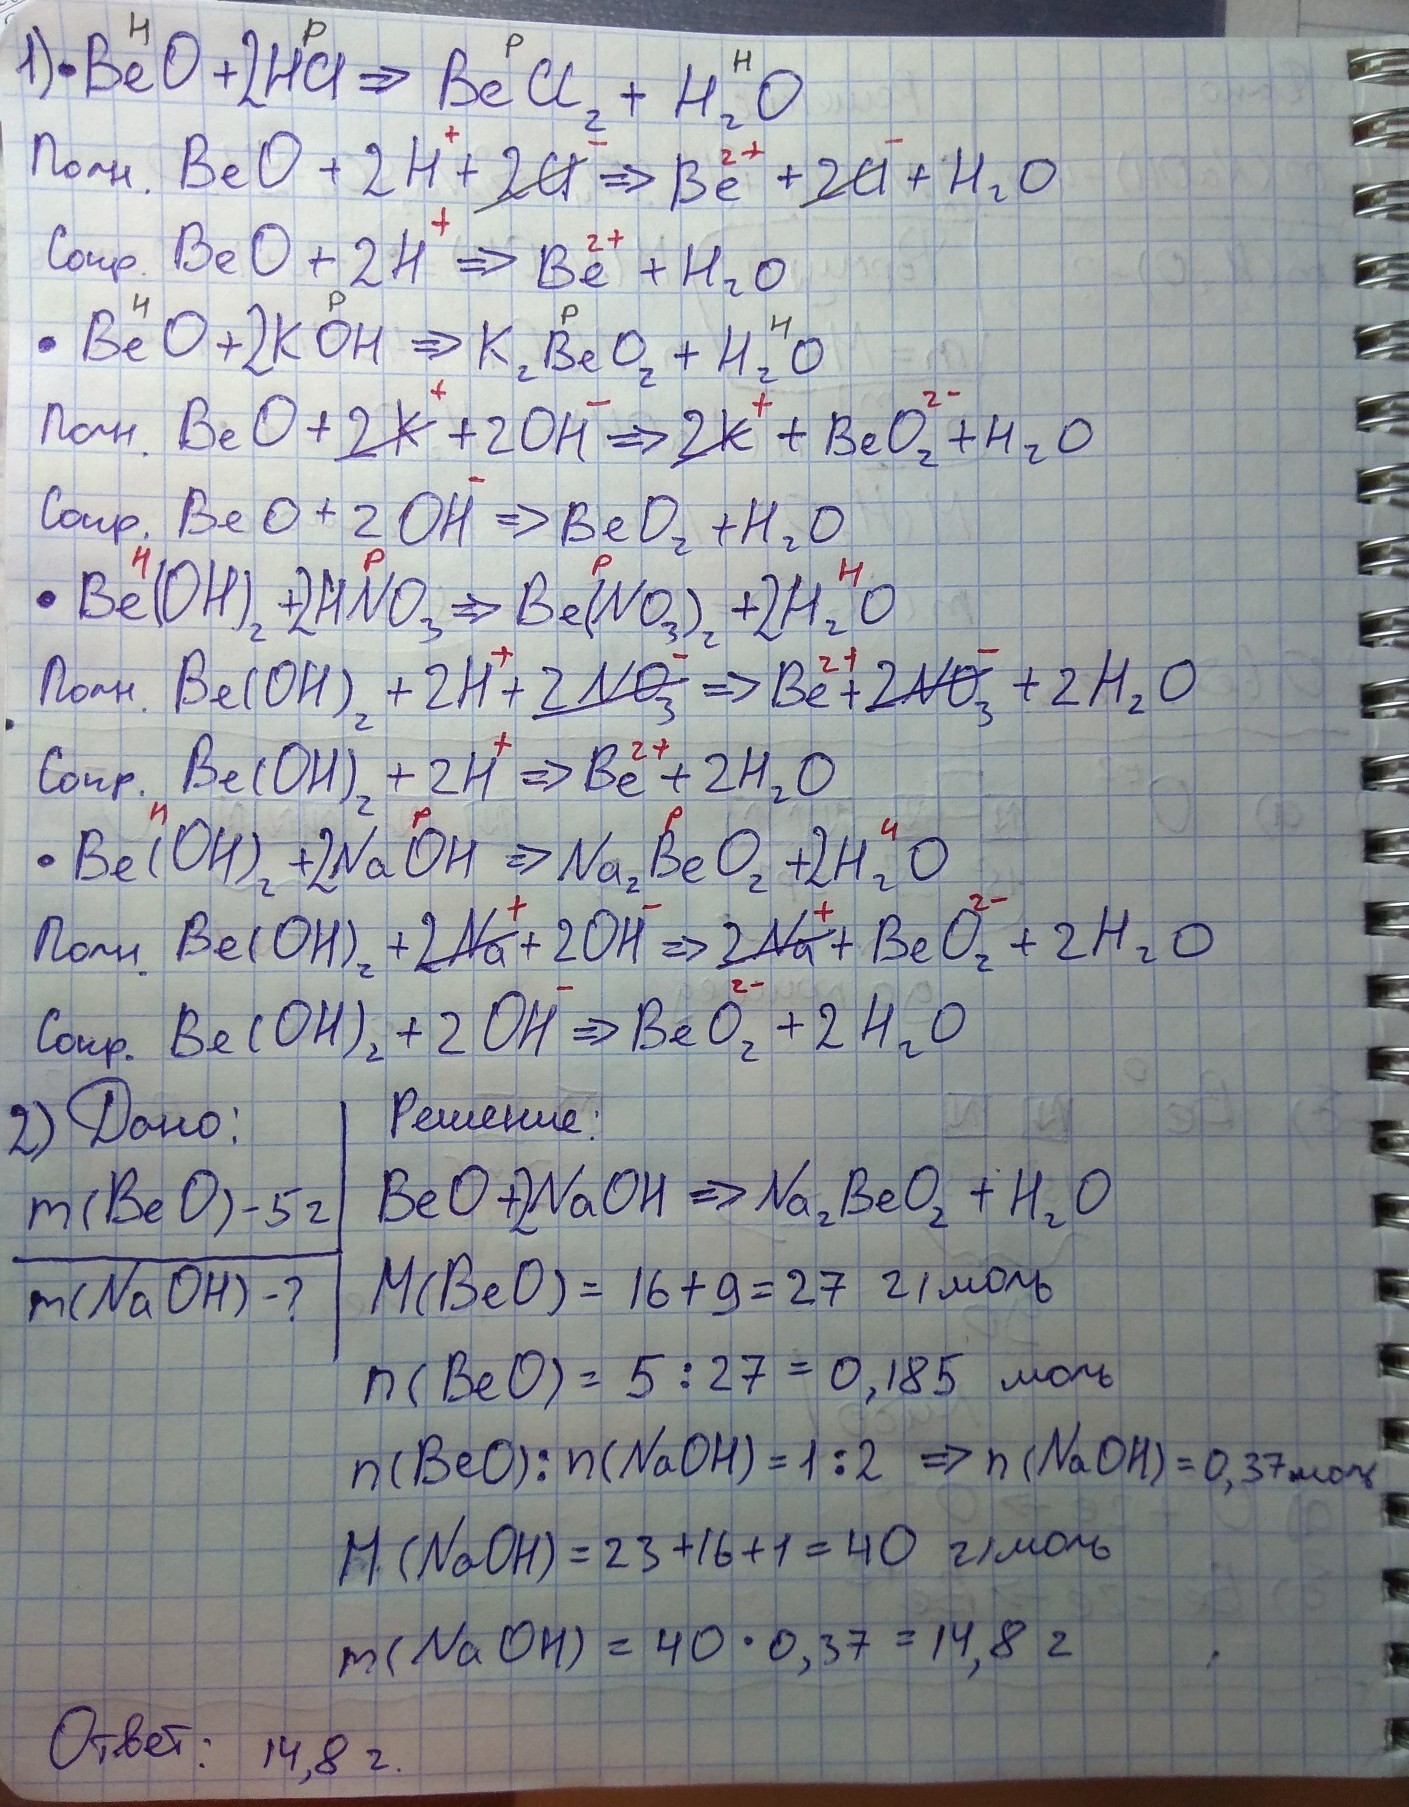 1) • BeO + 2HCl => BeCl₂ + H₂O
Полн. BeO + 2H⁺ + 2Cl⁻ => Be²⁺ + 2Cl⁻ + H₂O
Сокр. BeO + 2H⁺ => Be²⁺ + H₂O
• BeO + 2KOH => K₂BeO₂ + H₂O
Полн. BeO + 2K⁺ + 2OH⁻ => 2K⁺ + BeO₂²⁻ + H₂O
Сокр. BeO + 2OH⁻ => BeO₂ + H₂O
• Be(OH)₂ + 2HNO₃ => Be(NO₃)₂ + 2H₂O
Полн. Be(OH)₂ + 2H⁺ + 2NO₃⁻ => Be²⁺ + 2NO₃⁻ + 2H₂O
Сокр. Be(OH)₂ + 2H⁺ => Be²⁺ + 2H₂O
• Be(OH)₂ + 2NaOH => Na₂BeO₂ + 2H₂O
Полн. Be(OH)₂ + 2Na⁺ + 2OH⁻ => 2Na⁺ + BeO₂²⁻ + 2H₂O
Сокр. Be(OH)₂ + 2OH⁻ => BeO₂²⁻ + 2H₂O
2) Дано:
m(BeO) - 5 г
m(NaOH) - ?
Решение:
BeO + 2NaOH => Na₂BeO₂ + H₂O
M(BeO) = 16 + 9 = 27 г/моль
n(BeO) = 5 : 27 = 0,185 моль
n(BeO) : n(NaOH) = 1 : 2 => n(NaOH) = 0,37 моль
M(NaOH) = 23 + 16 + 1 = 40 г/моль
m(NaOH) = 40 · 0,37 = 14,8 г
Ответ: 14,8 г.